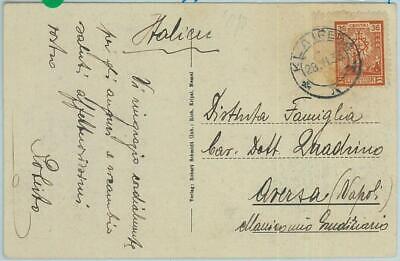 Italien
Vi ringrazio cordialmente
per gli auguri e ricambio
saluti affettuosissimi
vostro
Roberto
Verlag: Robert Schmidt (Inh. Rich. Krips), Memel
KLAIPĖDA
Distinta Famiglia
Cav. Dott. Quadrino
Aversa (Napoli)
Manicomio Giudiziario